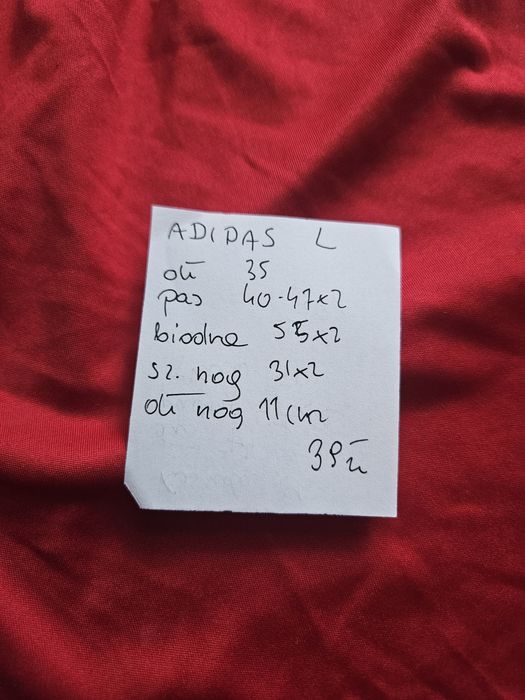 ADIDAS L
dł 35
pas 40-47x2
biodra 55x2
sz. nog 31x2
dł nog 11cm
39zł